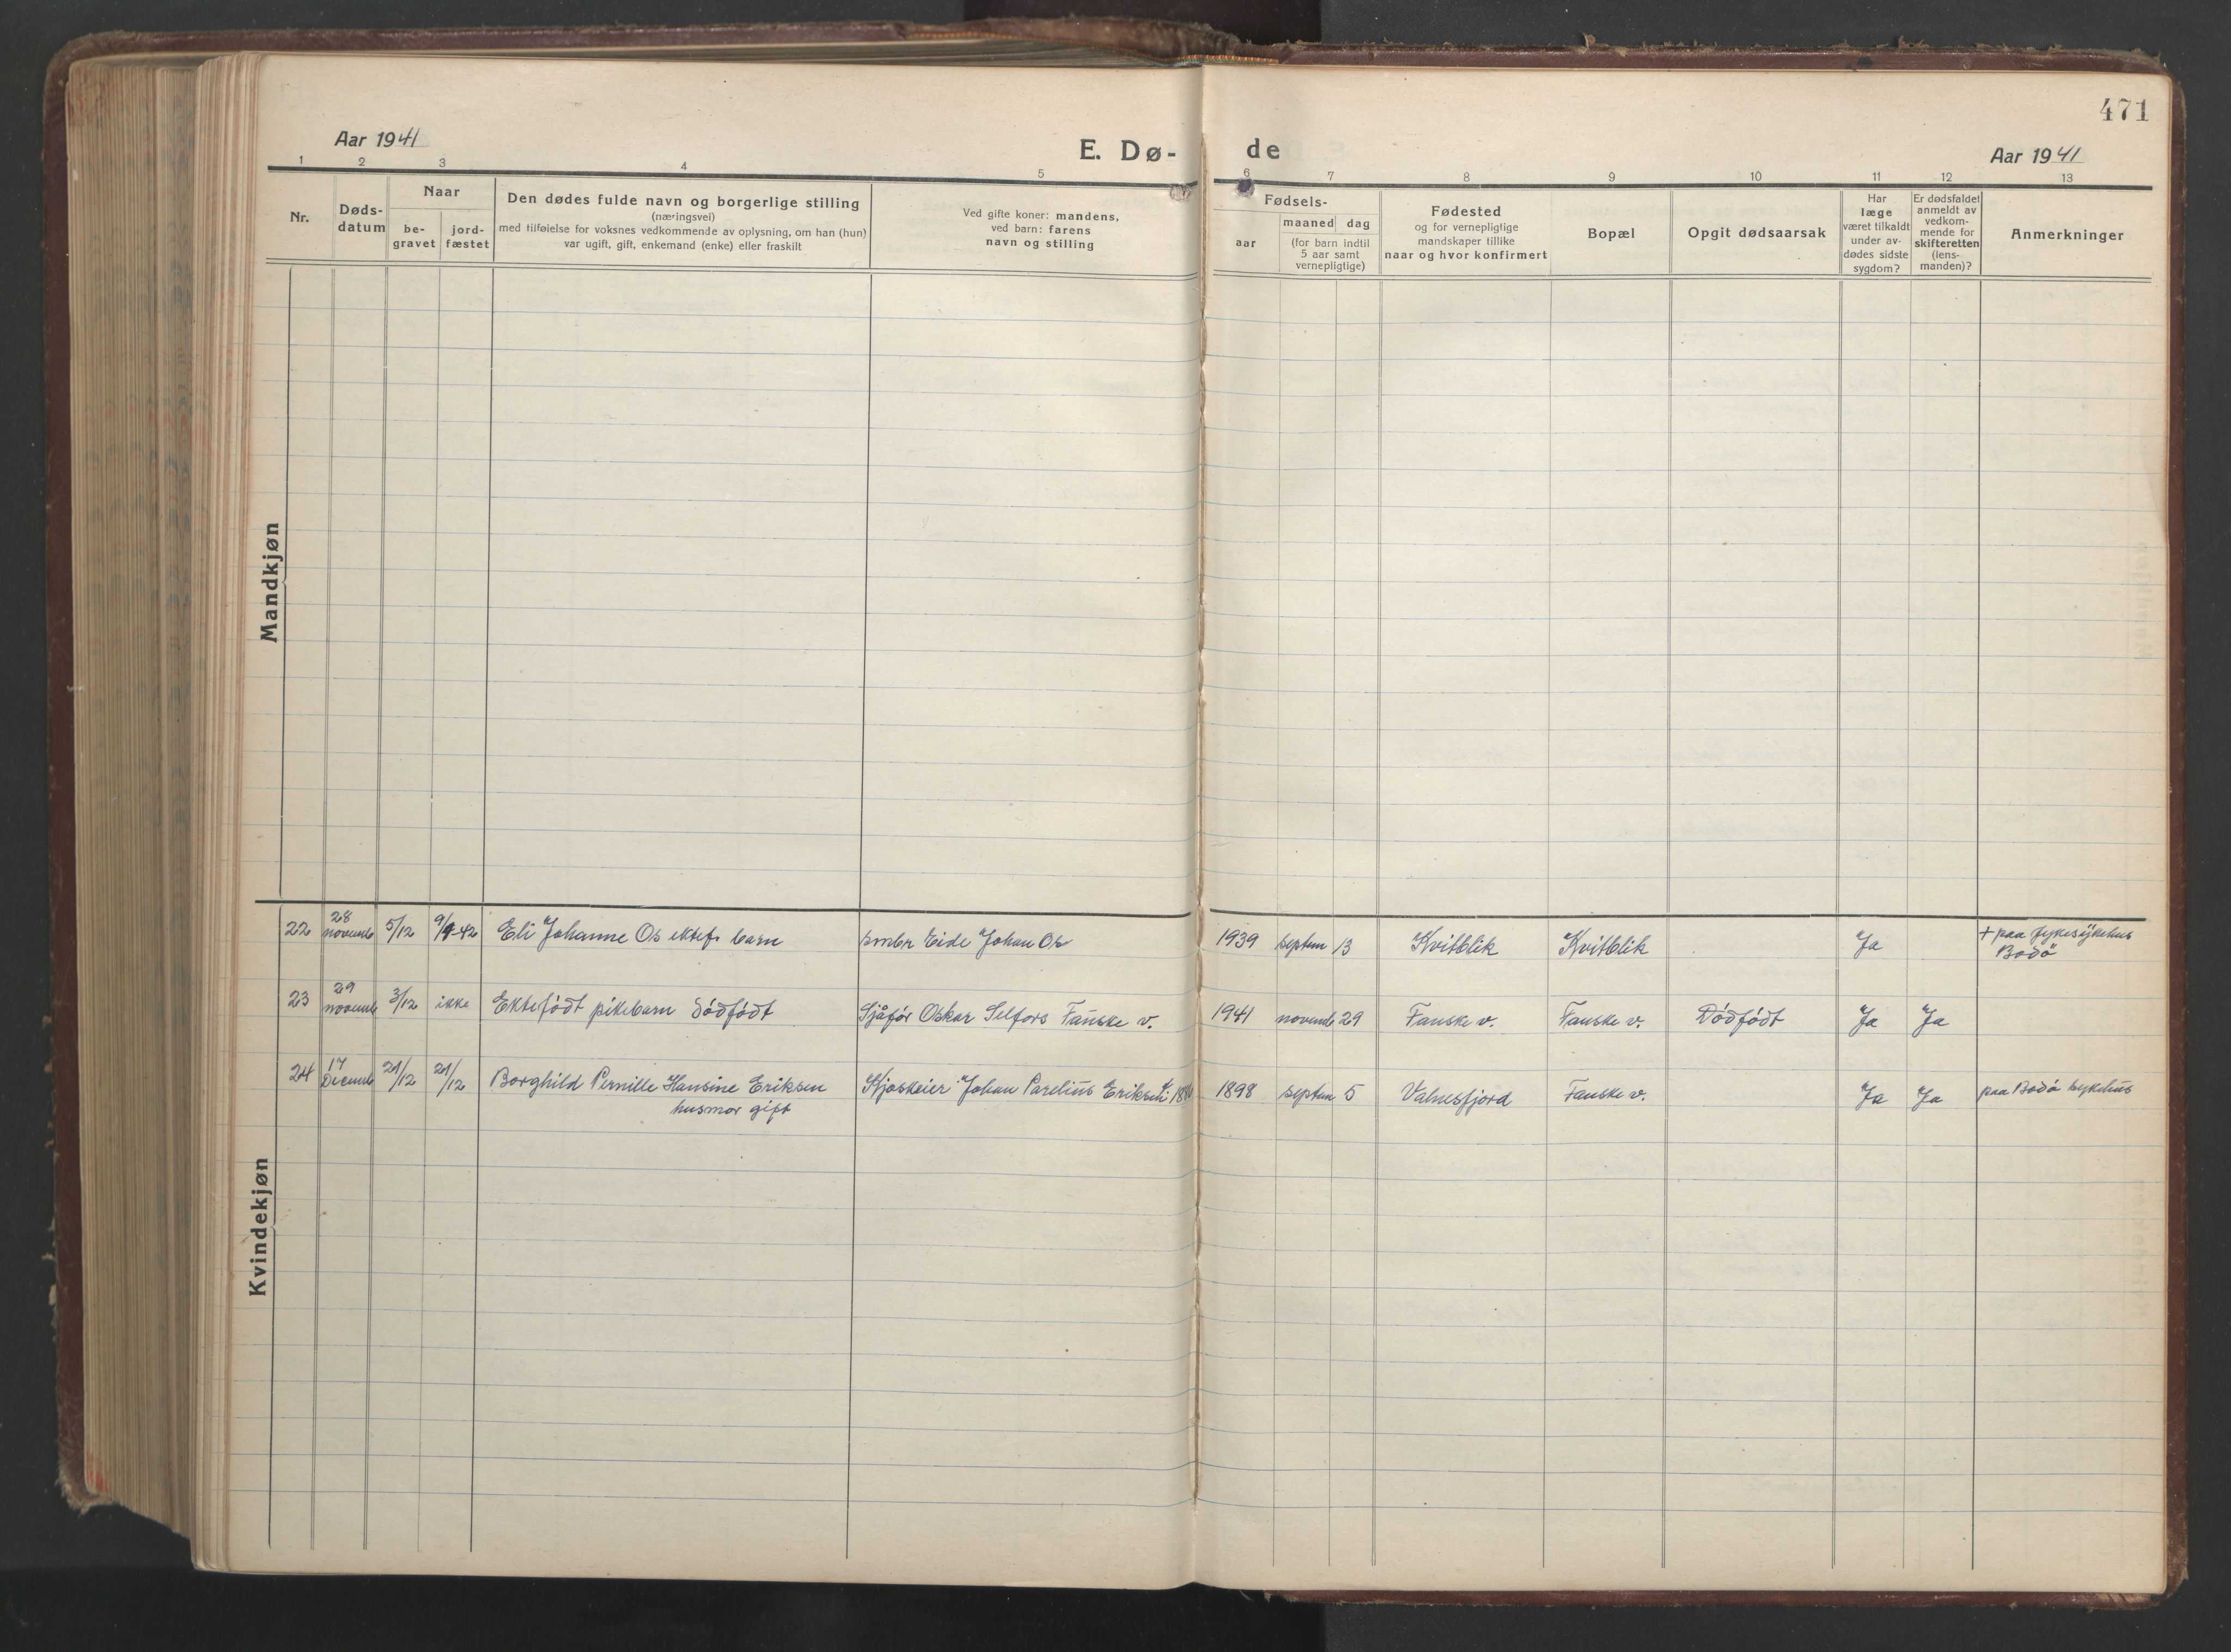 471
Aar 1941
E. Dø-
de
Aar 1941
1 2 3 4 5 6 7 8 9 10 11 12 13
Nr.
Døds-
datum
Naar
be-
gravet
jord-
fæstet
Den dødes fulde navn og borgerlige stilling
(næringsvei)
med tilføielse for voksnes vedkommende av oplysning, om han (hun)
var ugift, gift, enkemand (enke) eller fraskilt
Ved gifte koner: mandens,
ved barn: farens
navn og stilling
Fødsels-
aar
maaned dag
(for barn indtil
5 aar samt
vernepligtige)
Fødested
og for vernepligtige
mandskaper tillike
naar og hvor konfirmert
Bopæl
Opgit dødsaarsak
Har
læge
været tilkaldt
under av-
dødes sidste
sygdom?
Er dødsfaldet
anmeldt av
vedkom-
mende for
skifteretten
(lens-
manden)?
Anmerkninger
Mandkjøn
Kvindekjøn
22 28 novemb 5/12 9/1-42 Eli Johanne Os ektef. barn smbr Eide Johan Os 1939 septem 13 Kvitblik Kvitblik Ja + paa fykesykehus
Bodö
23 29 novemb 3/12 ikke Ektefödt pikebarn dödfödt Sjåför Oskar Selfors Fauske v. 1941 novemb 29 Fauske v. Fauske v. Dödfödt Ja Ja
24 17 Decemb 21/12 21/12 Borghild Pernille Hansine Eriksen Kjoskeier Johan Parelius Eriksen 1898 septem 5 Valnesfjord Fauske v. Ja Ja paa Bodö sykehus
husmor gift